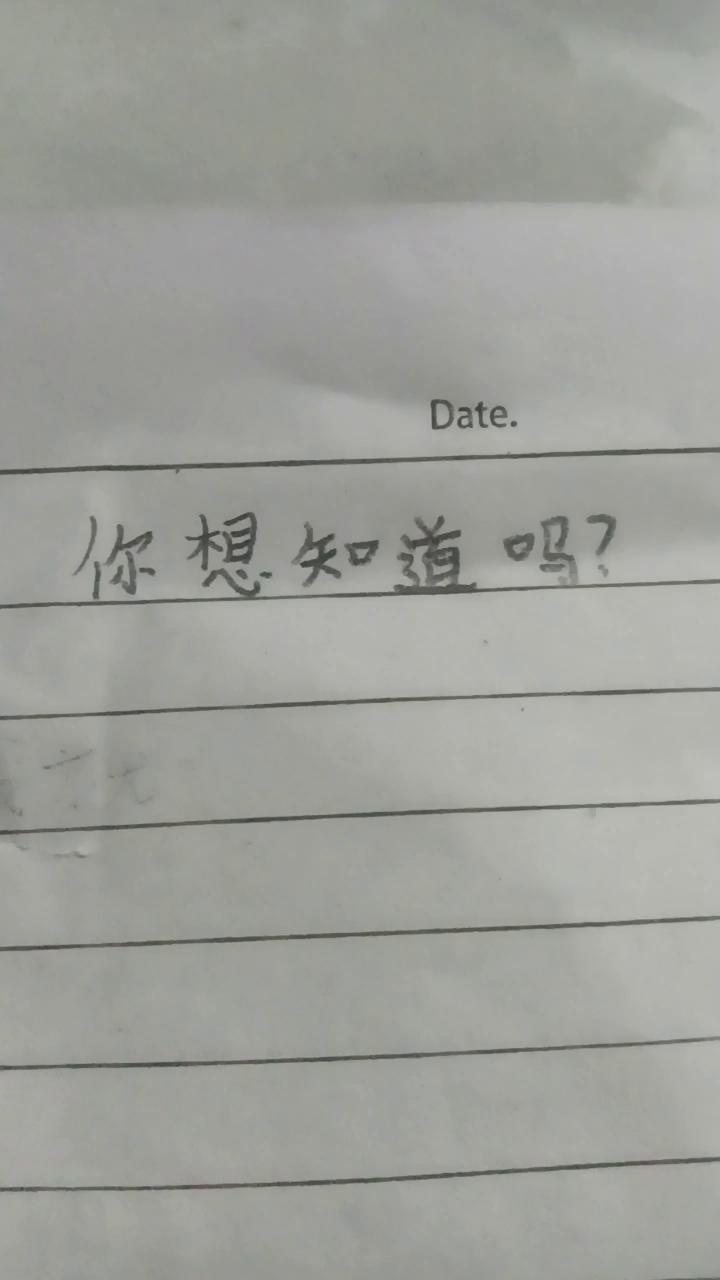 Date.
你想知道吗?